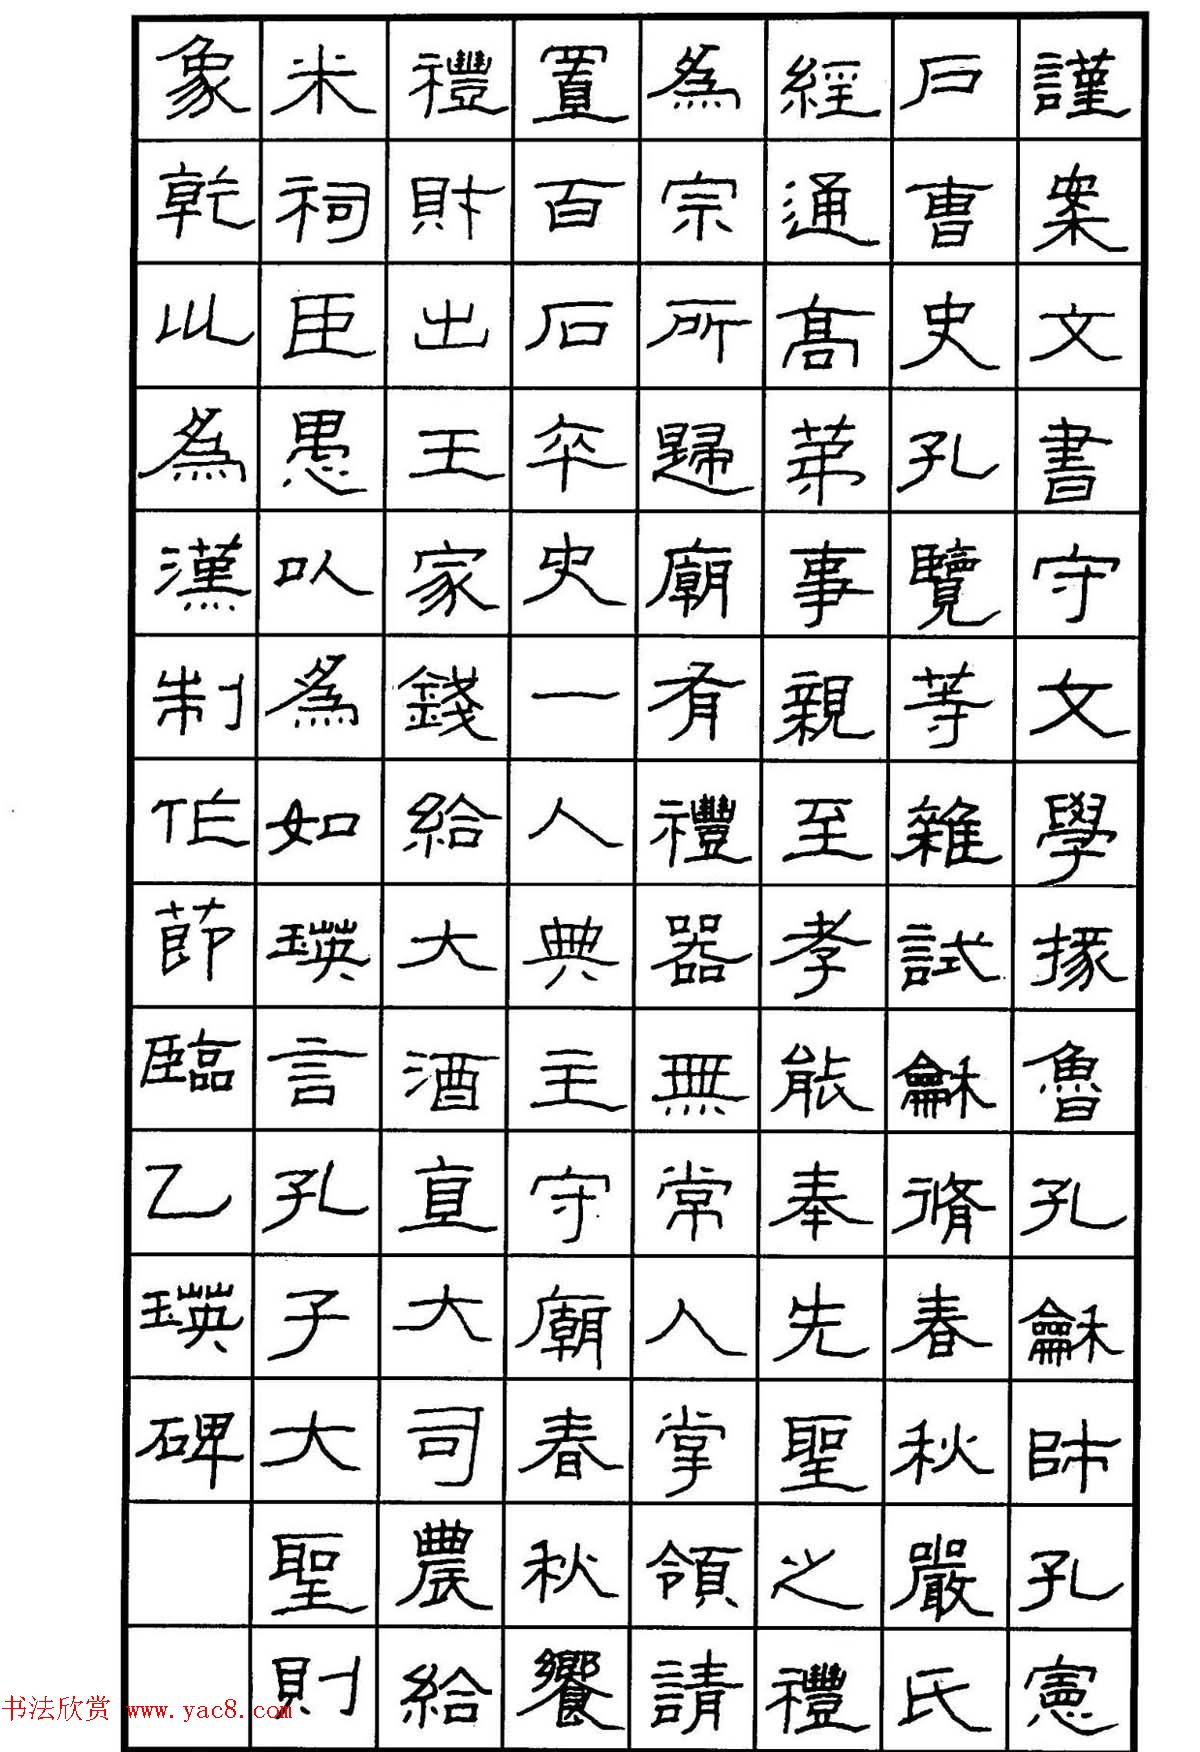 謹案文書守文學掾魯孔龢師孔憲
戶曹史孔覽等雜試龢脩春秋嚴氏
經通高苐事親至孝能奉先聖之禮
為宗所歸廟有禮器無常人掌領請
置百石卒史一人典主守廟春秋饗
禮財出王家錢給大酒直大司農給
米祠臣愚以為如瑛言孔子大聖則
象乾以為漢制作節臨乙瑛碑
书法欣赏 www.yac8.com